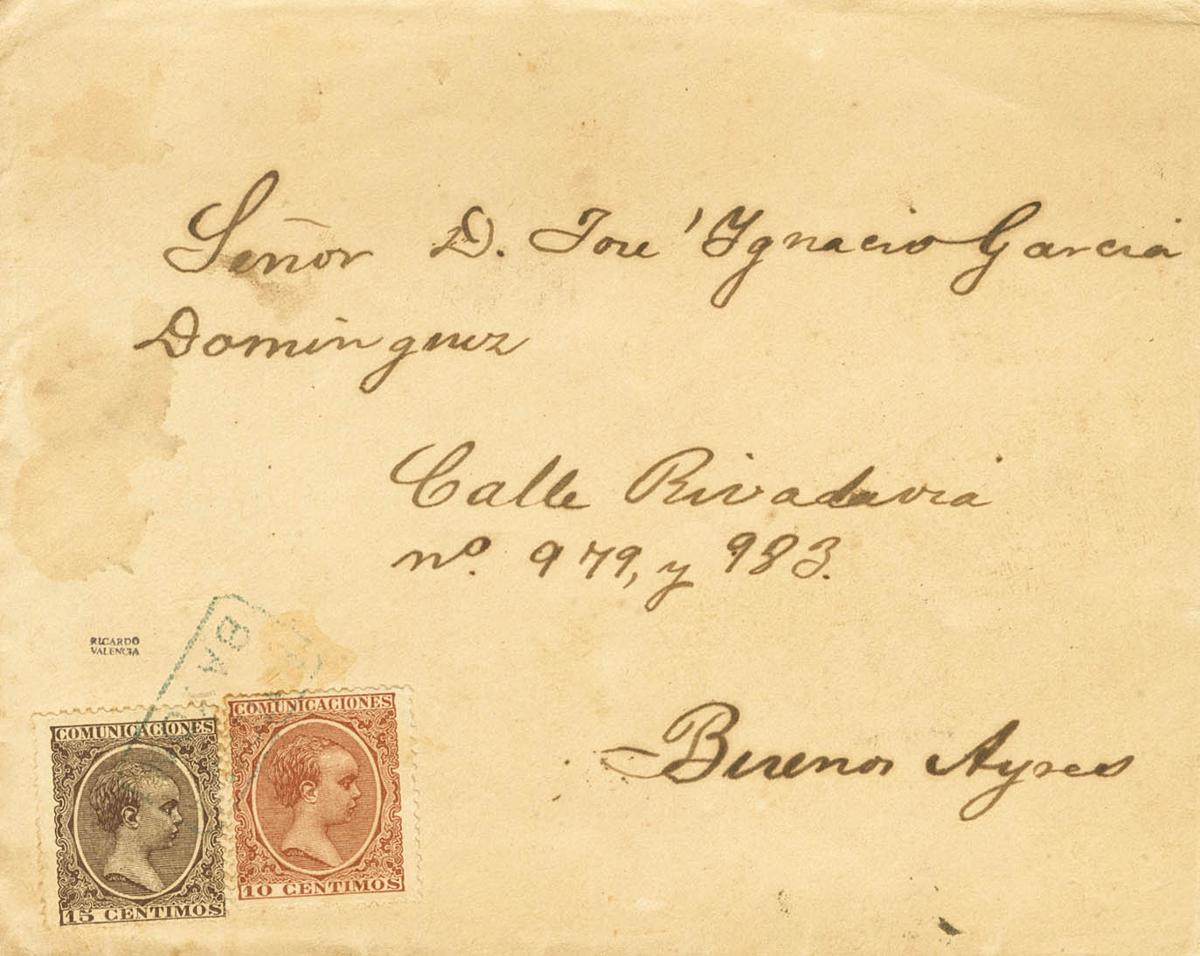 Señor D. José Ygnacio Garcia
Dominguez
Calle Rivadavia
nº. 979, y 983.
Buenos Ayres
RICARDO
VALENCIA
COMUNICACIONES
15 CENTIMOS
COMUNICACIONES
10 CENTIMOS